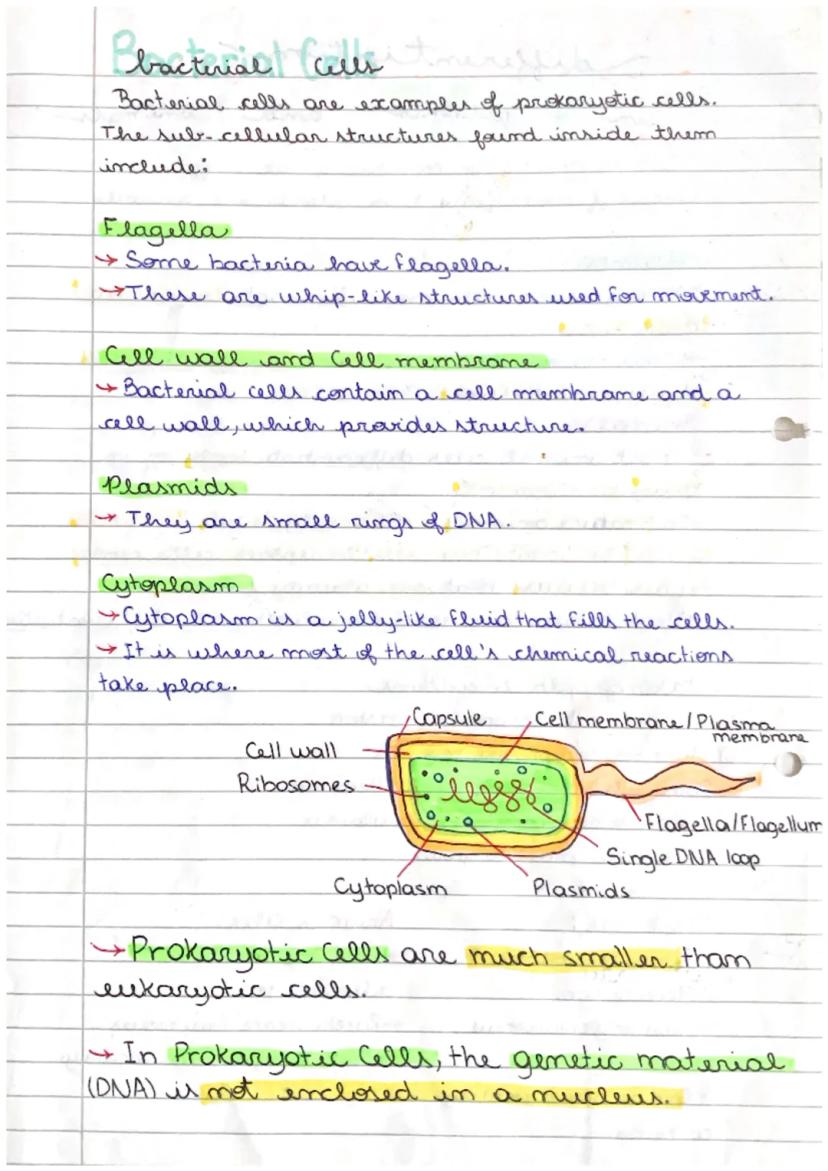 Bacterial Cells
bacterial cells
Bacterial cells are examples of prokaryotic cells.
The sub-cellular structures found inside them
include:
Flagella
→ Some bacteria have flagella.
→ These are whip-like structures used for movement.
Cell wall and Cell membrane
→ Bacterial cells contain a cell membrane and a
cell wall, which provides structure.
Plasmids
→ They are small rings of DNA.
Cytoplasm
→ Cytoplasm is a jelly-like fluid that fills the cells.
→ It is where most of the cell's chemical reactions
take place.
Capsule
Cell membrane/Plasma
membrane
Cell wall
Ribosomes
Flagella/Flagellum
Single DNA loop
Cytoplasm
Plasmids
→ Prokaryotic Cells are much smaller than
eukaryotic cells.
→ In Prokaryotic Cells, the genetic material
(DNA) is not enclosed in a nucleus.